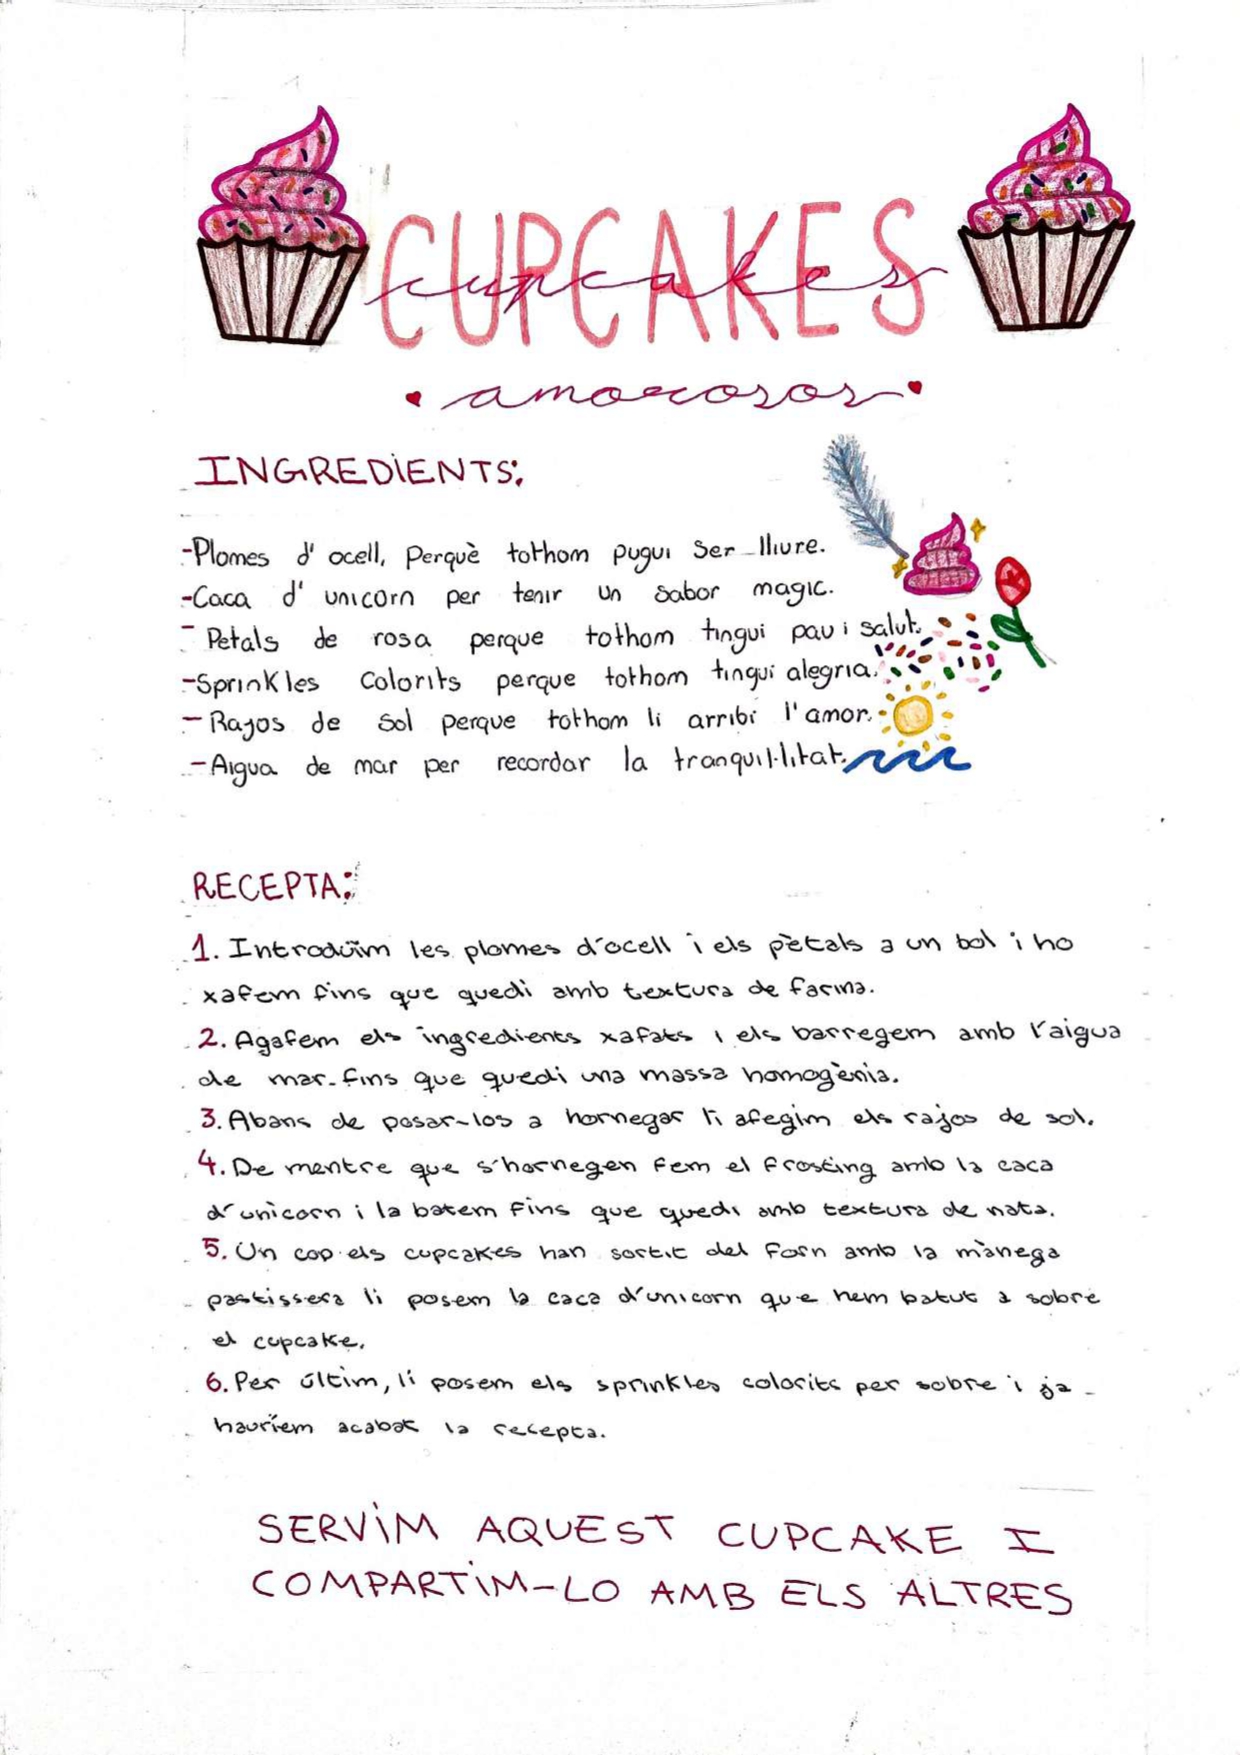 CUPCAKES
cupcakes
amorosos
INGREDIENTS:
-Plomes d'ocell, Perquè tothom pugui Ser lliure.
-Caca d'unicorn per tenir un sabor magic.
- Petals de rosa perque tothom tingui pau i salut.
-Sprinkles Colorits perque tothom tingui alegria.
- Rayos de Sol perque tothom li arribi l'amor.
- Aigua de mar per recordar la tranquil·litat.
RECEPTA:
1. Introduïm les plomes d'ocell i els pètals a un bol i ho
xafem fins que quedi amb textura de farina.
2. Agafem els ingredients xafats i els barregem amb l'aigua
de mar fins que quedi una massa homogènia.
3. Abans de posar-los a hornegar li afegim els rajos de sol.
4. De mentre que s'hornegen fem el frosting amb la caca
d'unicorn i la batem fins que quedi amb textura de nata.
5. Un cop els cupcakes han sortit del forn amb la mànega
pastissera li posem la caca d'unicorn que hem batut a sobre
el cupcake.
6. Per últim, li posem els sprinkles colorits per sobre i ja
hauríem acabat la recepta.
SERVIM AQUEST CUPCAKE I
COMPARTIM-LO AMB ELS ALTRES